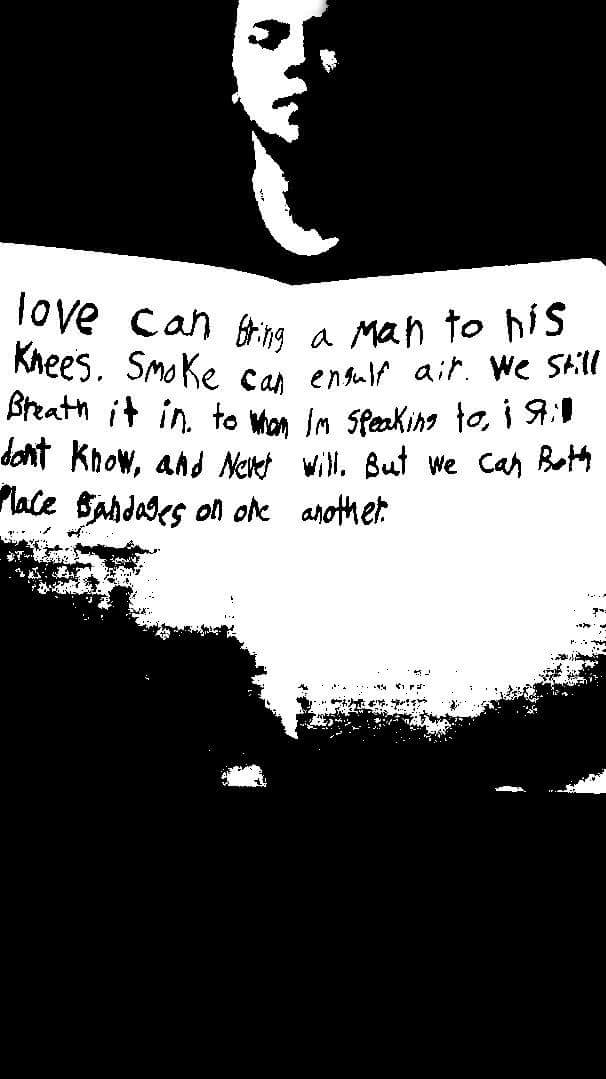 love can Bring a Man to his
Knees. Smoke can engulf air. We Still
Breath it in. to whom Im Speaking to, i Still
dont Know, and Never will. But we can Both
Place Bandages on one another.